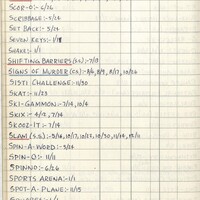 SCOR-O:- 6/26
SCRIBBAGE:- 5/24
SET BACK:- 5/24
SEVEN KEYS:- 1/18
SHAKE:- 1/1
SHIFTING BARRIERS (SS):- 7/13
SIGNS OF MURDER (CS):- 8/6, 8/9, 8/17, 10/26
SISTI CHALLENGE:- 11/30
SKAT:- 11/23
SKI-GAMMON:- 7/14, 10/4
SKIX:- 4/2, 7/14
SKOOZ-IT:- 7/14
SLAM (S.S.):-
SPIN-A-WORD:- 5/24
SPIN-O:- 11/11
SPINNO:- 6/26
SPORTS ARENA:- 1/1
SPOT-A-PLANE:- 11/15